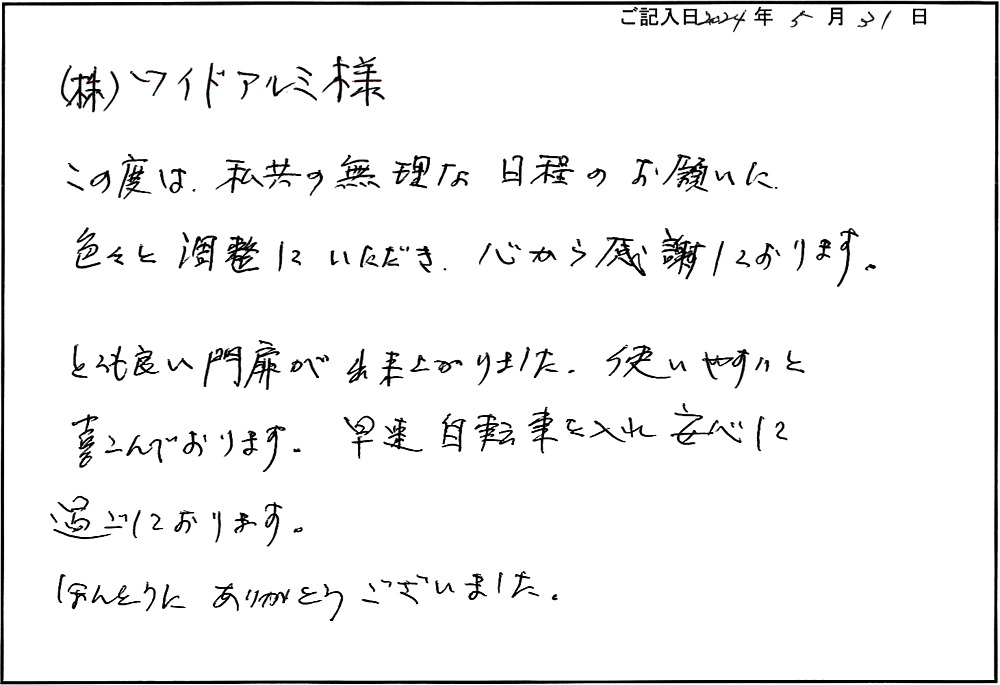 ご記入日2024年 5月 31日
(株)ワイドアルミ様
この度は、私共の無理な 日程の お願いに、
色々と 調整していただき、心から感謝しております。
とても良い門扉が出来上がりました。使いやすいと
喜こんでおります。早速 自転車を入れ 安心して
過ごしております。
ほんとうに ありがとう ございました。